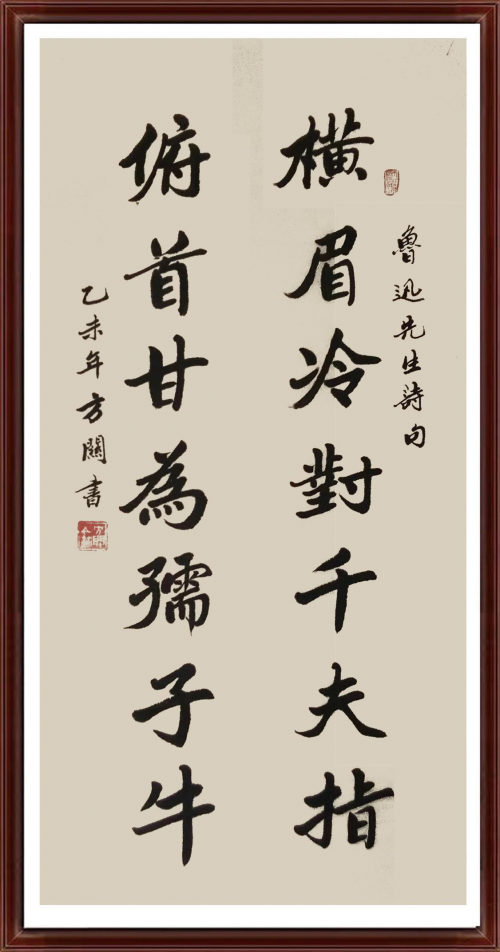 魯迅先生詩句
橫眉冷對千夫指
俯首甘為孺子牛
乙未年方關書